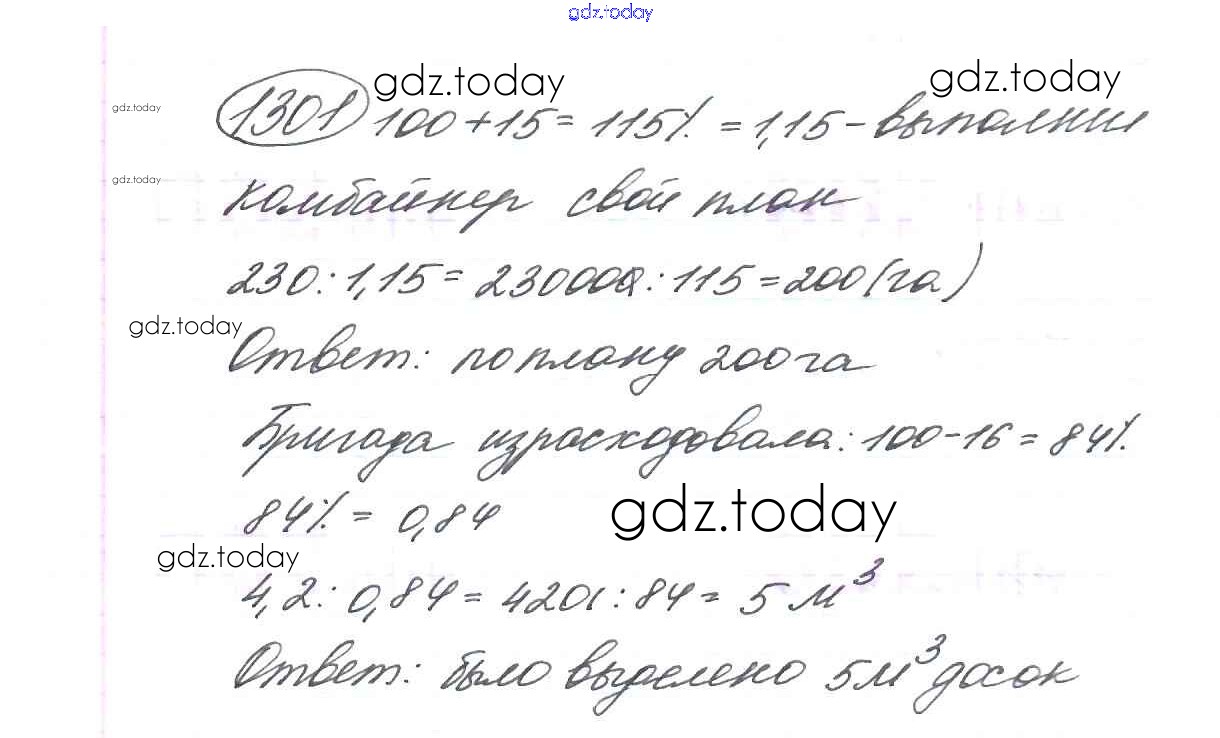 gdz.today
gdz.today gdz.today
gdz.today
1301 100+15=115%=1,15-выполнил
gdz.today
комбайнер свой план
230:1,15=23000:115=200(га)
gdz.today
Ответ: по плану 200 га
Бригада израсходовала: 100-16=84%
84%=0,84
gdz.today
gdz.today
4,2:0,84=420:84=5 м³
Ответ: было выделено 5 м³ досок